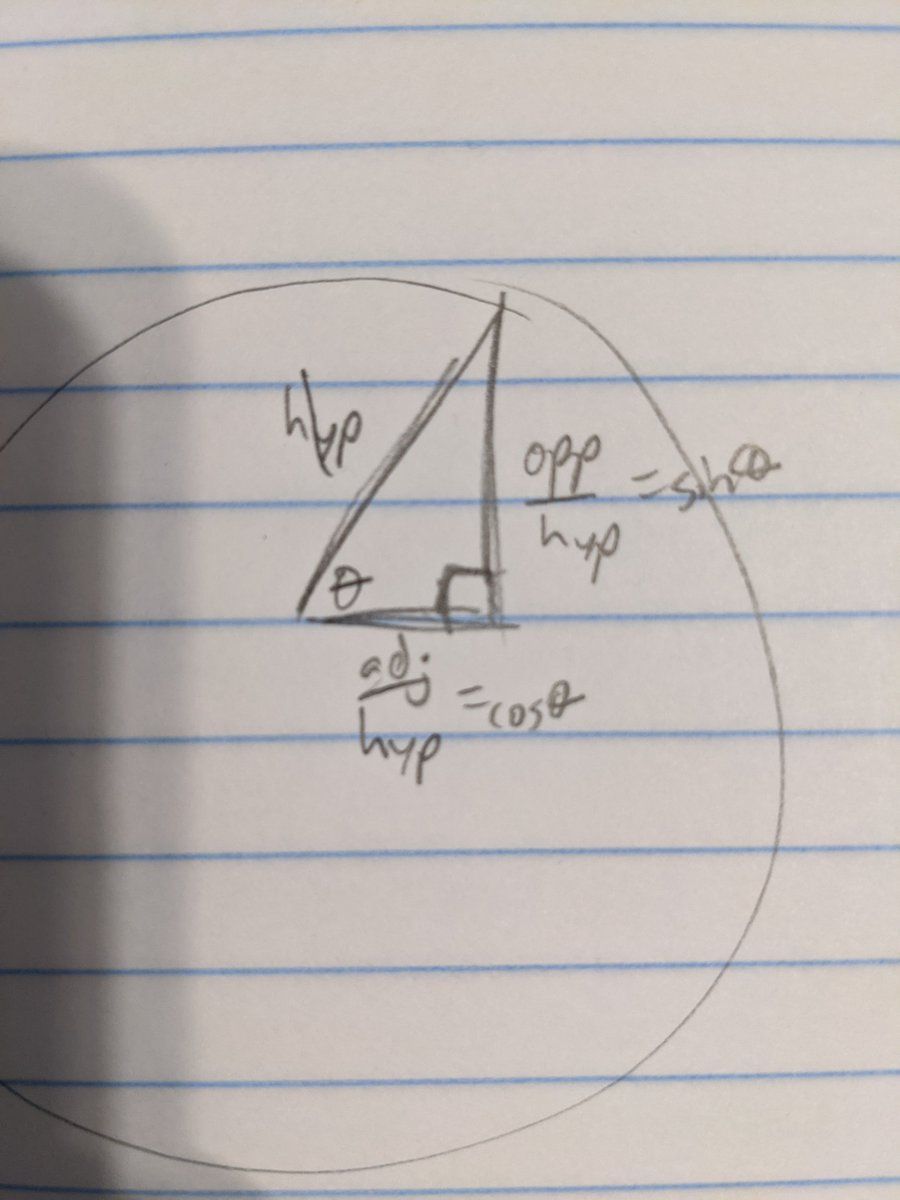 hyp
opp
hyp
= sinθ
θ
adj
hyp
= cosθ